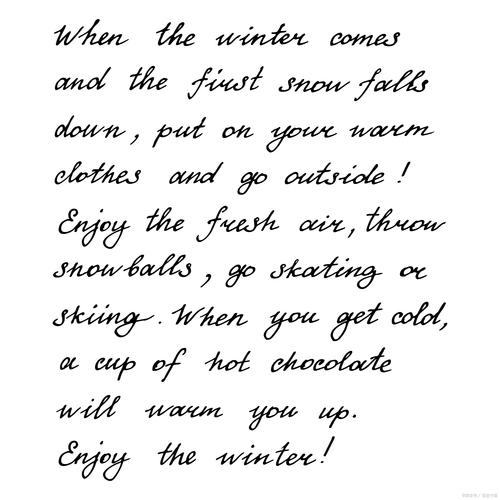 When the winter comes
and the first snow falls
down, put on your warm
clothes and go outside!
Enjoy the fresh air, throw
snowballs, go skating or
skiing. When you get cold,
a cup of hot chocolate
will warm you up.
Enjoy the winter!